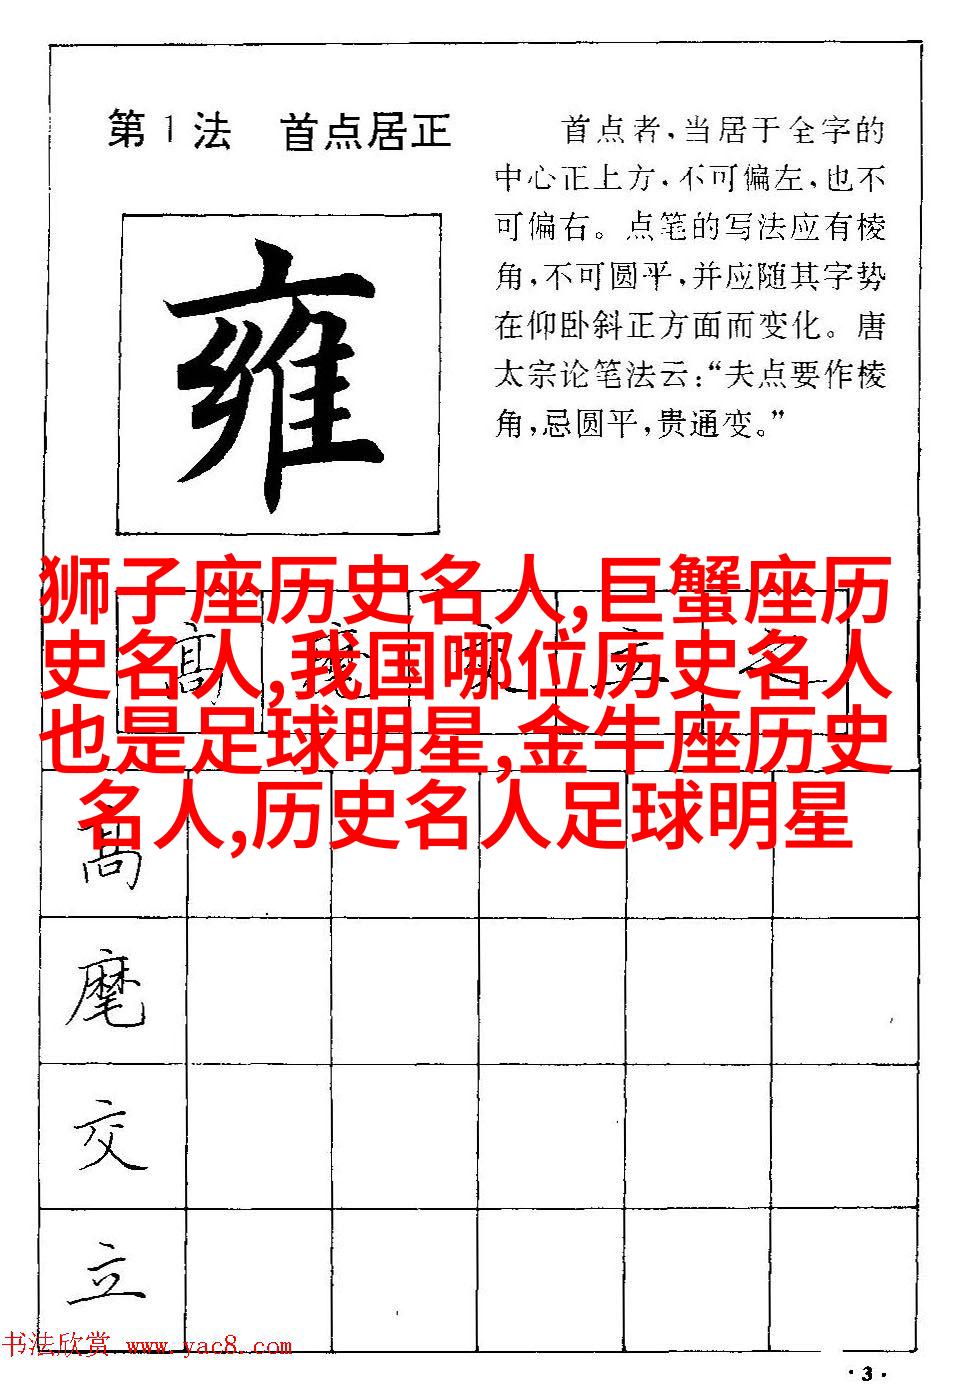 第1法 首点居正
首点者,当居于全字的
中心正上方,不可偏左,也不
可偏右。点笔的写法应有棱
角,不可圆平,并应随其字势
在仰卧斜正方面而变化。唐
太宗论笔法云:“夫点要作棱
角,忌圆平,贵通变。”
雍
狮子座历史名人,巨蟹座历
史名人,我国哪位历史名人
也是足球明星,金牛座历史
名人,历史名人足球明星
高
交
立
书法欣赏 www.yac8.com
·3·